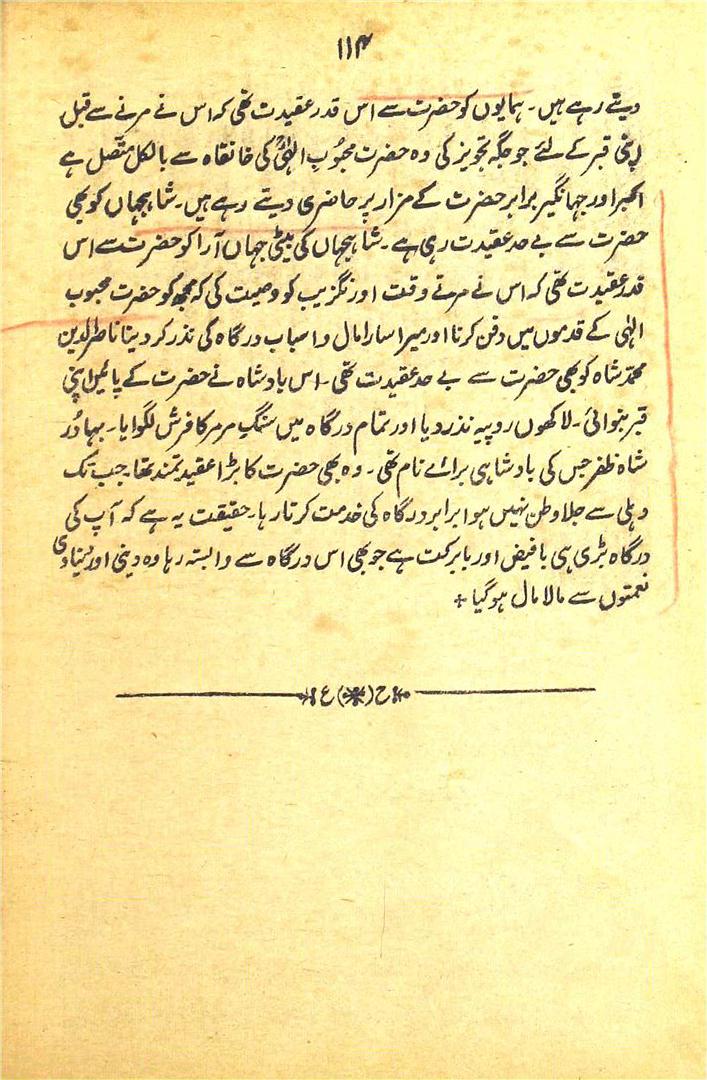 ۱۱۴
دیتے رہے ہیں۔ ہمایوں کو حضرت سے اس قدر عقیدت تھی کہ اس نے مرنے سے قبل
اپنی قبر کے لئے جو جگہ تجویز کی وہ حضرت محبُوبِ الٰہیؒ کی خانقاہ سے بالکل متّصل ہے
اکبر اور جہانگیر برابر حضرت کے مزار پر حاضری دیتے رہے ہیں۔ شاہجہاں کو بھی
حضرت سے بے حد عقیدت رہی ہے۔ شاہجہاں کی بیٹی جہاں آرا کو حضرت سے اس
قدر عقیدت تھی کہ اس نے مرتے وقت اورنگزیب کو وصیت کی کہ مجھ کو حضرت محبوب
الٰہی کے قدموں میں دفن کرنا اور میرا سارا مال و اسباب درگاہ کی نذر کر دینا ناصرالدین
محمّد شاہ کو بھی حضرت سے بے حد عقیدت تھی۔ اس بادشاہ نے حضرت کے پائیں اپنی
قبر بنوائی۔ لاکھوں روپیہ نذر دیا اور تمام درگاہ میں سنگِ مرمر کا فرش لگوایا۔ بہادُر
شاہ ظفر جس کی بادشاہی برائے نام تھی۔ وہ بھی حضرت کا بڑا عقیدتمند تھا۔ جب تک
دہلی سے جلاوطن نہیں ہوا برابر درگاہ کی خدمت کرتا رہا۔ حقیقت یہ ہے کہ آپ کی
درگاہ بڑی ہی بافیض اور بابرکت ہے جو بھی اس درگاہ سے وابستہ رہا وہ دینی اور دنیاوی
نعمتوں سے مالا مال ہو گیا +